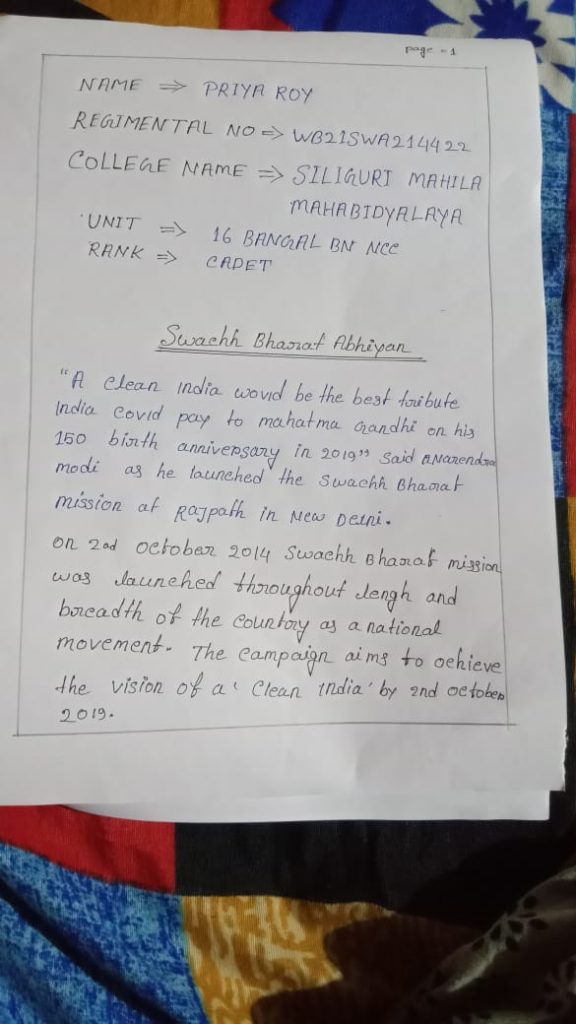 page - 1
NAME ⇒ PRIYA ROY
REGIMENTAL NO ⇒ WB21SWA214422
COLLEGE NAME ⇒ SILIGURI MAHILA
MAHABIDYALAYA
UNIT ⇒ 16 BANGAL BN NCC
RANK ⇒ CADET
Swachh Bharat Abhiyan
"A clean india would be the best tribute
India could pay to mahatma Gandhi on his
150 birth anniversary in 2019" said Narendra
modi as he launched the Swachh Bharat
mission at Rajpath in New Delhi.
on 2nd october 2014 Swachh Bharat mission
was launched throughout lengh and
breadth of the country as a national
movement. The campaign aims to achieve
the vision of a 'Clean India' by 2nd october
2019.